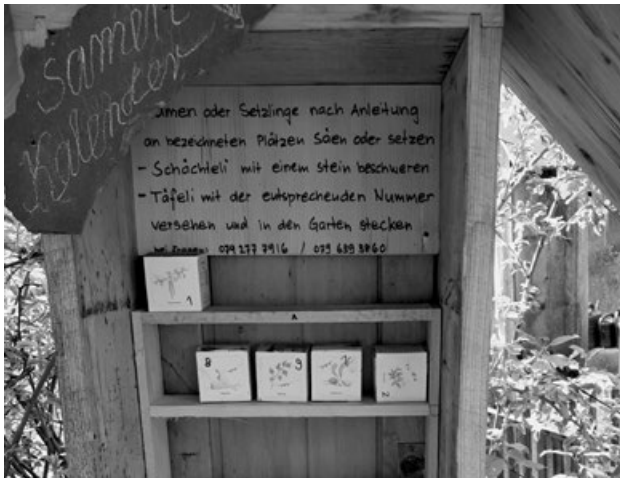 Samen
Kalender
Samen oder Setzlinge nach Anleitung
an bezeichneten Plätzen Säen oder setzen
- Schächteli mit einem stein beschweren
- Täfeli mit der entsprechenden Nummer
versehen und in den Garten stecken
bei Fragen: 079 277 7916 /
1
8
9
7
2